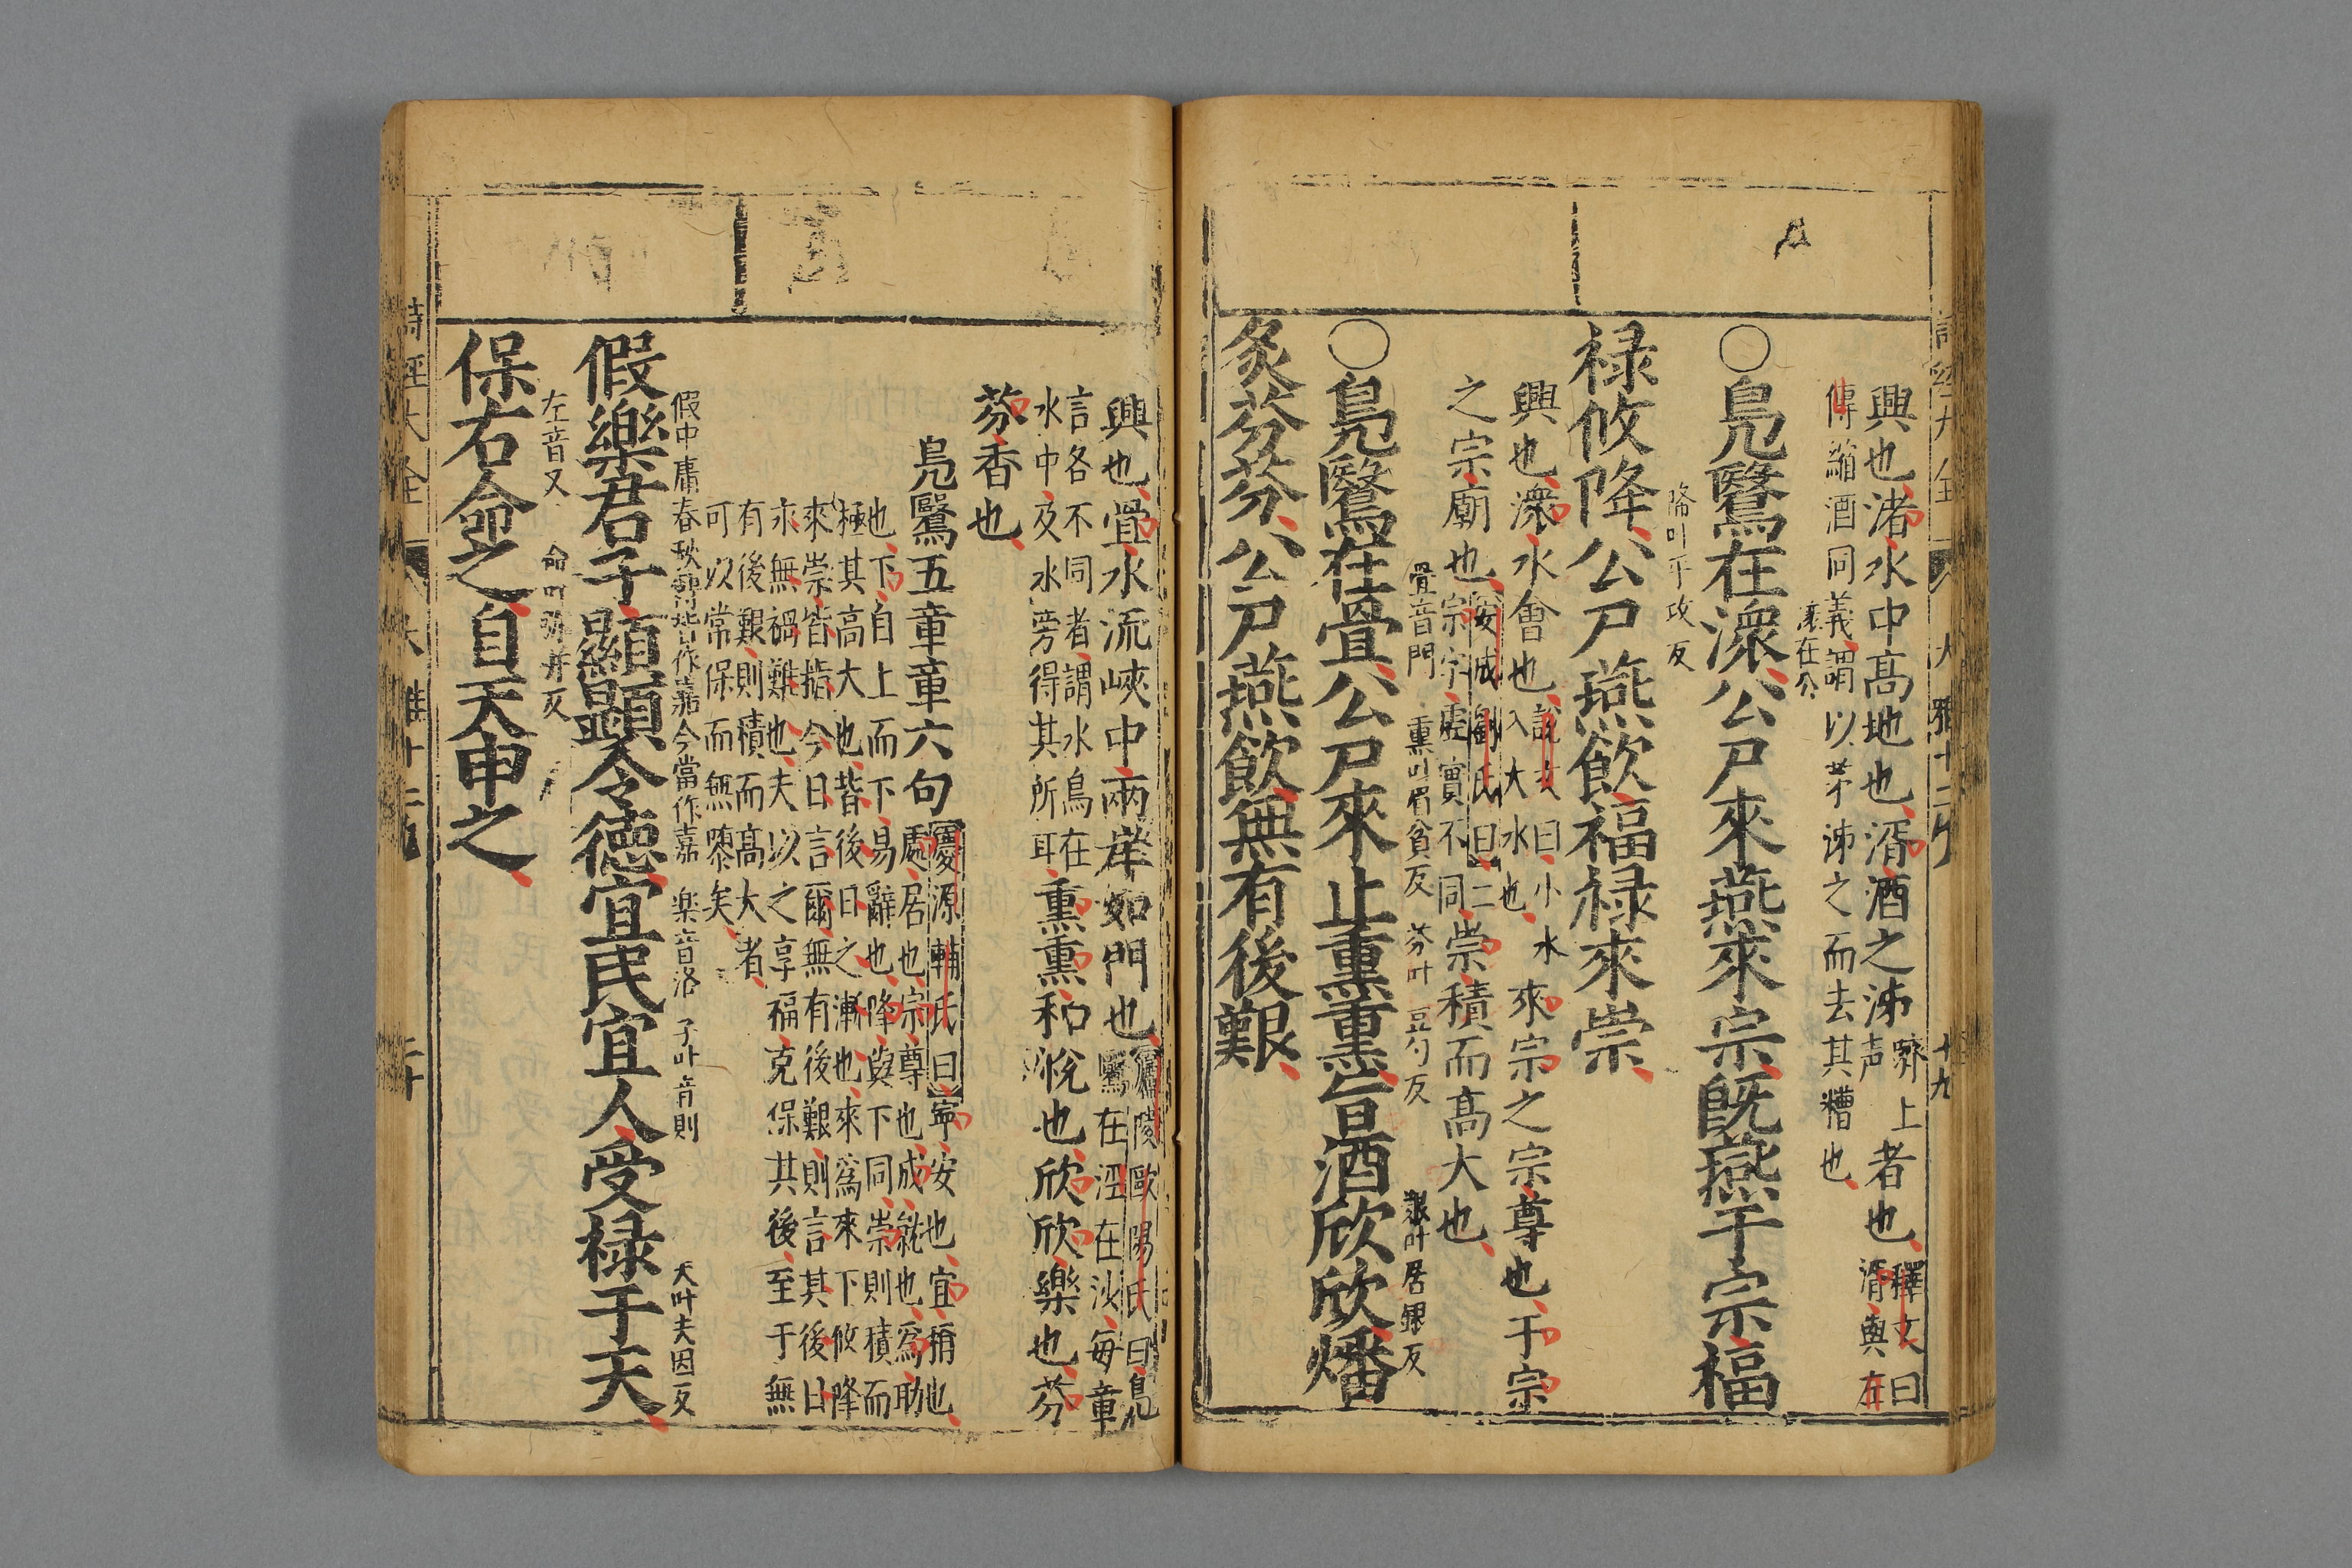 詩經大全 大雅十二 十九
興也渚水中高地也湑酒之泲者也
声 上
釋文曰
湑與左
傳縮酒同義謂以茅泲之而去其糟也
潀在公
○鳧鷖在潀公尸來燕來宗既燕于宗福
降叶乎攻反
禄攸降公尸燕飲福禄來崇
興也潀水會也
說文曰小水
入大水也
來宗之宗尊也于宗
之宗廟也
安成劉氏曰二
宗字虛實不同
崇積而高大也
亹音門 熏叶眉貧反 芬叶豆勻反 艱叶居銀反
○鳧鷖在亹公尸來止熏熏旨酒欣欣燔
炙芬芬公尸燕飲無有後艱
興也亹水流峽中兩岸如門也
廬陵歐陽氏曰鳧
鷖在涇在沙每章
言各不同者謂水鳥在
水中及水旁得其所耳
熏熏和悅也欣欣樂也芬
芬香也
鳧鷖五章章六句
慶源輔氏曰寧安也宜稱也
處居也宗尊也成就也爲助
也下自上而下易辭也降與下同崇則積而
極其高大也皆後日之漸也來爲來下攸降
來崇皆指今日言爾無有後艱則言其後日
亦無禍難也夫以之享福克保其後至于無
有後艱則積而高大者
可以常保而無隳矣
假中庸春秋傳皆作嘉今當作嘉 楽音洛 子叶音則 天叶夫因反
假樂君子顯顯令德宜民宜人受禄于天
左音又 命叶弥并反
保右命之自天申之
詩經大全 大雅十二 二十